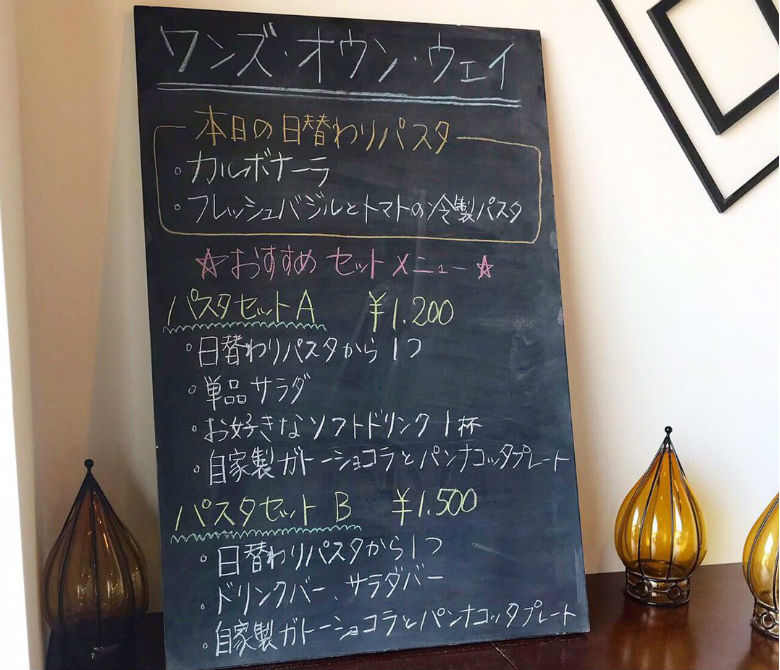 ワンズ・オウン・ウェイ
本日の日替わりパスタ
・カルボナーラ
・フレッシュバジルとトマトの冷製パスタ
☆おすすめ セットメニュー☆
パスタセットA ¥1.200
・日替わりパスタから1つ
・単品サラダ
・お好きなソフトドリンク1杯
・自家製ガトーショコラとパンナコッタプレート
パスタセット B ¥1.500
・日替わりパスタから1つ
・ドリンクバー、サラダバー
・自家製ガトーショコラとパンナコッタプレート